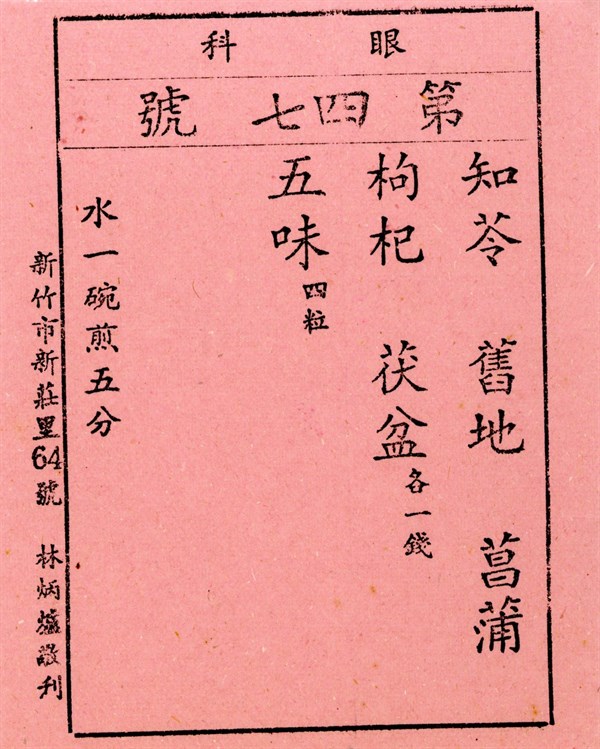 眼科
第四七號
知苓 舊地 菖蒲
枸杞 茯盆 各一錢
五味 四粒
水一碗煎五分
新竹市新莊里64號 林炳爐敬刊